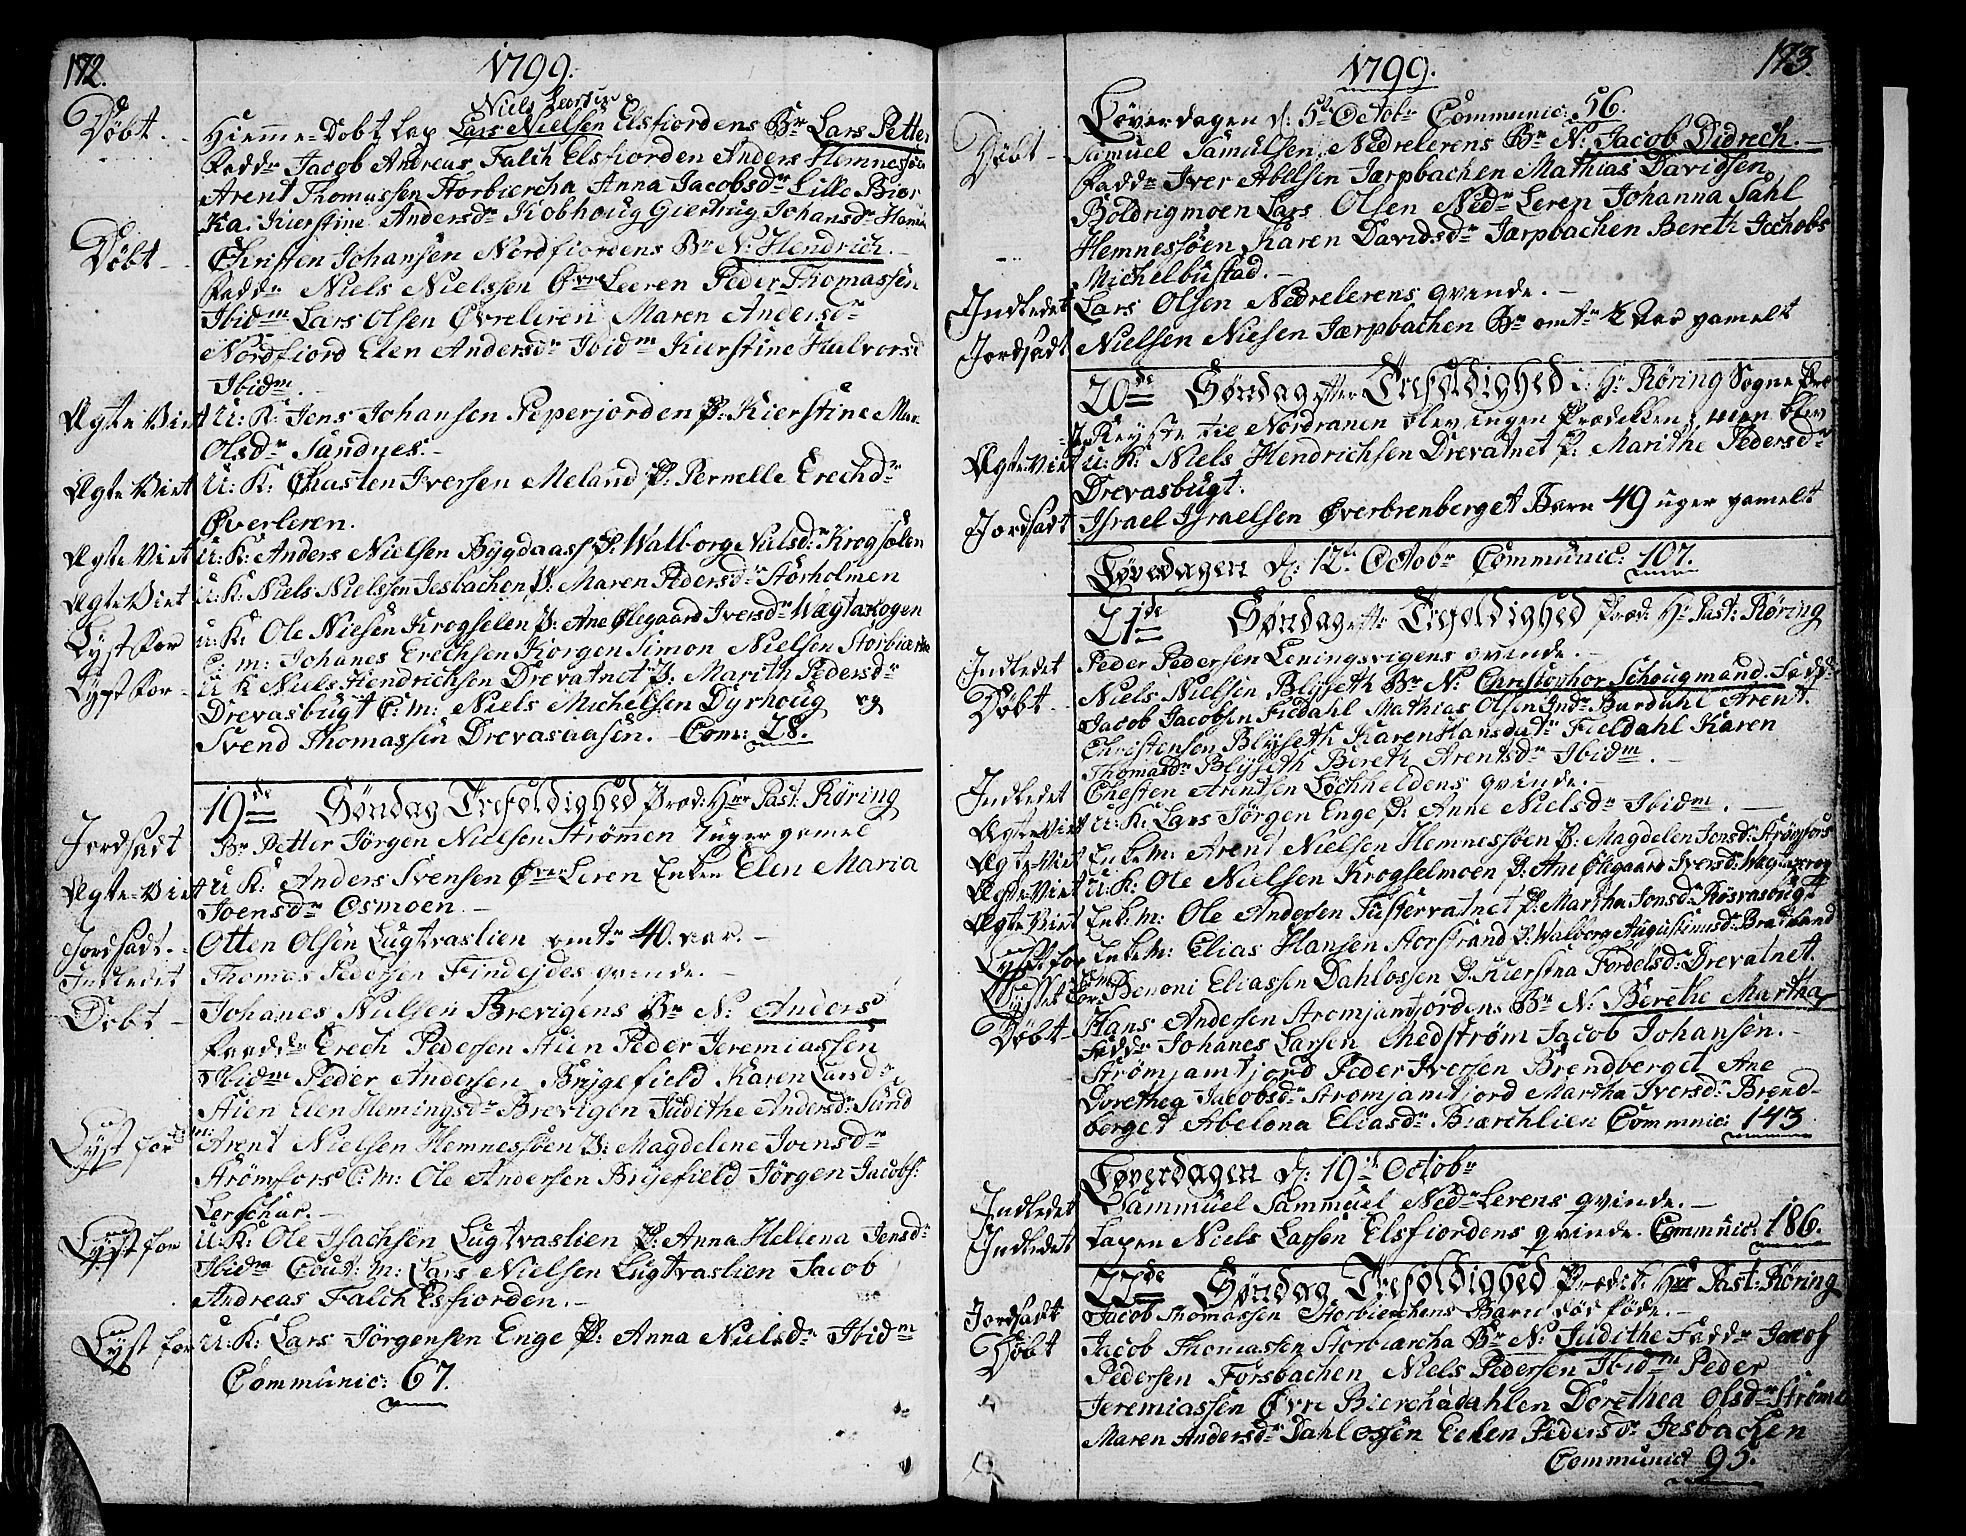 172.
1799.
Niels Larsen
Döbt. Hiemme-Dobt Lap Lars Nielsen Elsfiordens Br Lars Petter
Fadd:r Jacob Andreas Falch Elsfiorden Anders Hemnessöen
Arent Thomassen Storbiercha Anna Jacobsd:r Lille Bier
Ka. Kierstine Andersd:r Kobhoug Giertrug Johansd:r Hemn
Döbt Christen Johansen Nordfiordens Br N: Hendrich.
Fadd:r Niels Nielssen Øvre Leeren Peder Thomassen
Ibidm Lars Olsen Øvreleren Maren Andersd:r
Nordfiord Elen Andersd:r Ibidm Kierstine Halvorsd
Ibidm.
Ægte Viet U: K: Jens Johansen Peperjorden P: Kierstine Mar
Olsd:r Sandnes.
Ægte Viet U: K: Christen Iversen Meland P: Pernelle Erechd:r
Øverleren.
Ægte Viet U: K: Anders Nielsen Bygdaass P: Walborg Nielsd:r Krogsölen
Ægte Viet U: K: Niels Nielssen Jesbachen P: Maren Pedersd:r Storholmen
Lyst for U: K: Ole Nielsen Krogselen P: Ane Ølegaard Iversd:r Wagtaskogen
C: m: Johanes Erechsen Korgen Simon Nielsen Storbiercha
Lyst for U K Niels Hendrichsen Drevatnet P: Marith Pedersd:r
Drevasbugt C: m: Niels Michelsen Dyrhoug og
Svend Thomassen Drevasaasen. Com: 28.
19de Söndag Trefoldighed Præd: Hrr Past: Röring
Jordsadt Br Petter Jörgen Nielsen Strömen 7 uger gamel
Ægte-Viet U: K: Anders Svensen Øvre Leren Enken Elen Maria
Joensd:r Osmoen.
Jordsadt. Otten Olsen Lugtvaslien omtr 40. aar.
Indledet Thomas Pedersen Findejdes qvinde.
Döbt Johanes Nielsen Brevigens Br N: Anders
Fadd:r Erech Pedersen Stien Peder Jeremiassen
Ibidm Peder Andersen Brygefield Karen Larsd:r
Stien Elen Hemingsd:r Brevigen Judithe Andersd:r Sund
Lyst for Arent Nielsen Hemnessöen P: Magdelene Joensd:r
Strömfors C: m: Ole Andersen Brygefield Jörgen Jacobs:
Lerschar.
Lyst for U: K: Ole Isachsen Lugtvaslien P: Anna Hellena Jensd:r
Ibidm Caut: m: Lars Nielsen Lugtvaslien Jacob
Andreas Falch Esfiorden.
Lyst for U: K: Lars Jörgensen Enge P: Anna Nielsd:r Ibidm
Communic: 67.
173.
1799.
Löverdagen d: 5te Octobr Communic: 56.
Döbt Samuel Samuelsen Nedrelerens Br N: Jacob Didrech.
Fadd:r Iver Abelsen Jarpbachen Mathias Davidsen
Boldrigmoen Lars Olsen Nedr Leren Johanna Dahl
Hemnessöen Karen Davidsd:r Jarpbachen Bereth Jechobs
Michelbustad.
Indledet Lars Olsen Nedrelerens qvinde.
Jordsadt Nielsen Niesen Jærpbachen Br omtr 2 aar gamelt
20de Söndag efter Trefoldighed i Hr Röring Sogne Præ
Reyste til Nordranen blev ingen Prædicken, men blev
Ægte Viet U: K: Niels Hendrichsen Drevatnet P: Marithe Pedersd:r
Drevasbugt.
Jordsadt Israel Israelsen Øverbrenberget Barn 49 uger gamelt
Löverdagen d: 12te Octobr Communic: 107.
21de Söndag eftr Trefoldighed Præd: Hr Past: Röring
Indledet Peder Pedersen Leningsvigens qvinde.
Döbt Niels Nielsen Blyseth Br N: Christopher Schougmand. Fadd:
Jacob Jacobsen Fieldahl Mathias Olsen Indr Bardahl Arent
Christensen Blyseth Karen Hansdatr Fieldahl Karen
Thomasd:r Blyseth Bereth Arentsd:r Ibidm.
Indledet Chresten Arentsen Löchheldens qvinde.
Ægte Viet U: K: Lars Jörgen Enge P: Anne Nielsd:r Ibidm.
Ægte-Viet Enkem: Arent Nielsen Hemnessöen P: Magdelen Jonsd: Strömfors
Ægte Viet U: K: Ole Nielsen Krogselmoen P: Ane Ølegaard Iversd: Wagtaskog
Ægte Viet Enk: m: Ole Andersen Tustervatnet P: Martha Jonsd: Rösvasbugt
Lyst for Enkem: Elias Hansen Storstrand P: Walborg Augustinusd: Bratland
Lyst for Benoni Eliassen Dahlossen P: Kierstna Fordelsd: Drevatnet.
Döbt Hans Andersen Stromjamtjordens Br N: Berethe Martha
Fadd:r Johanes Larsen Chedström Jacob Johansen.
Strömjamtjord Peder Iversen Brendberget Ane
Dorethea Jacobsd:r Stromjamtjord Martha Iversd:r Brend-
berget Abelona Eliasd:r Biærchlien Communic: 143
Löverdagen d: 19de Octobr
Indledet Sammuel Sammuel Nedr Lerens qvinde.
Indledet Lapen Niels Larsen Elsfiordens qvinde. Communic: 186.
22de Söndag Trefoldighed Prædik: Hrr Past: Röring
Jordsadt Jacob Thomassen Storbierchens Barn död föde.
Döbt Jacob Thomassen Storbiarcha Br N: Judithe Fadd:r Jacob
Pedersen Forsbachen Niels Pedersen Ibidm Peder
Jeremiassen Øvre Bierchadahlen Dorethea Olsd:r Ströme
Maren Andersd:r Dahlossen Eelen Pedersd:r Jesbachen
Communic: 95.